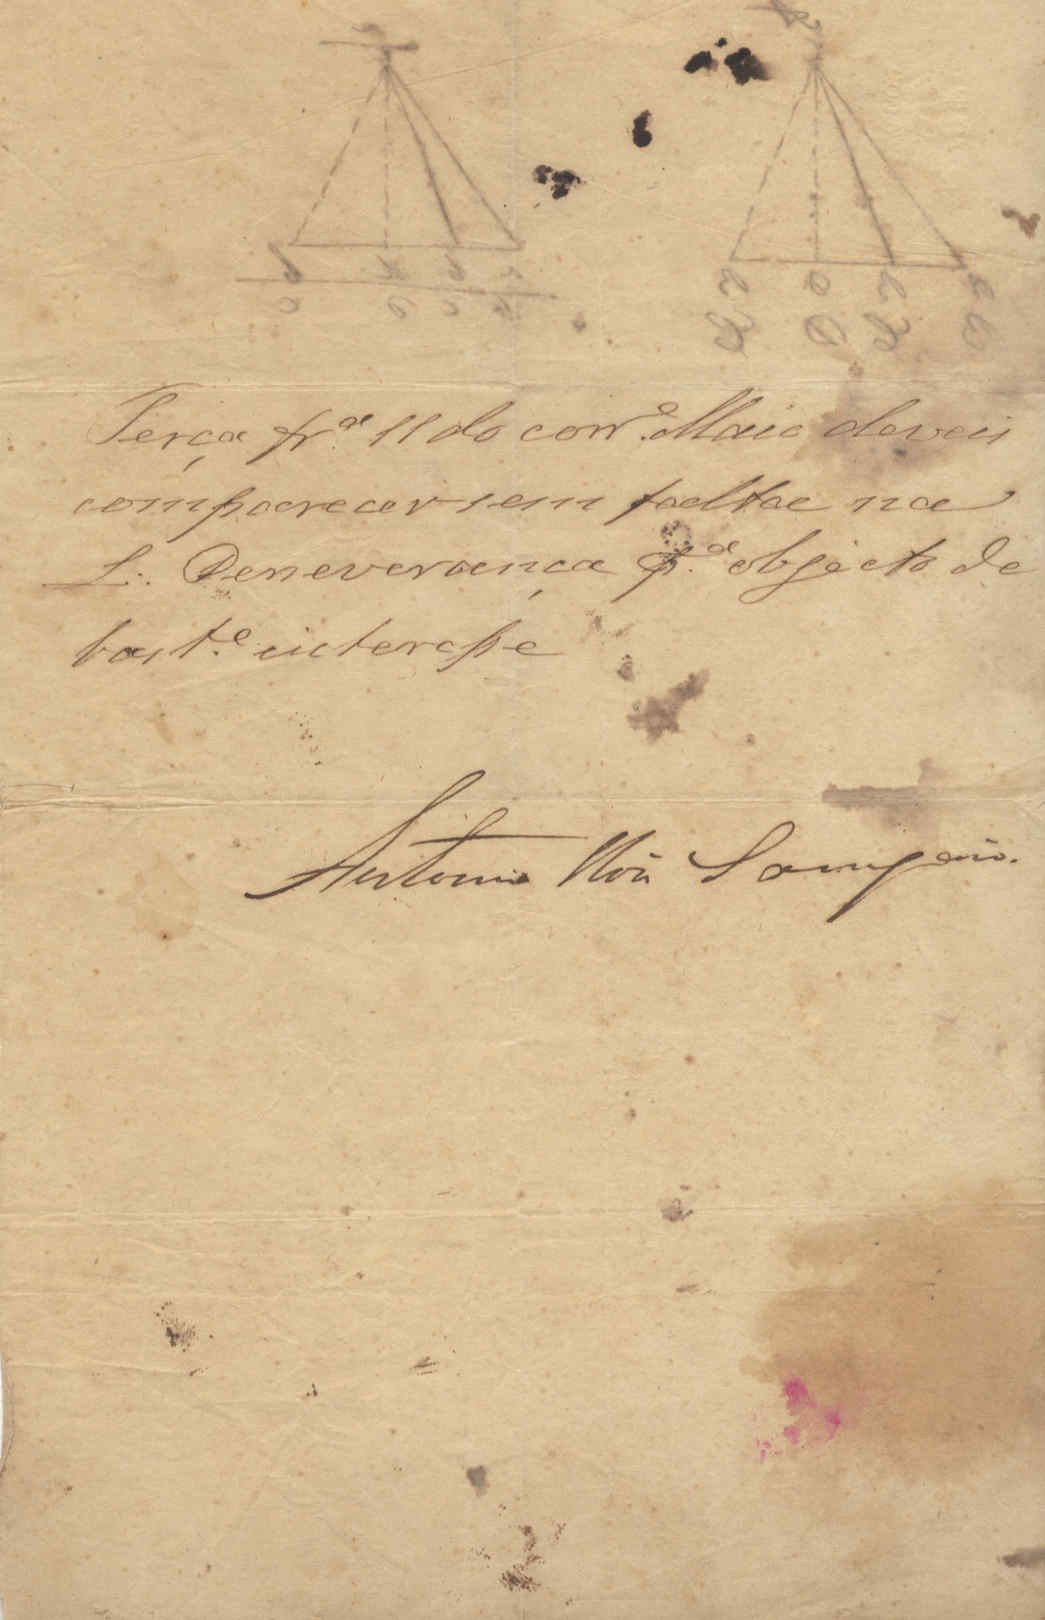 Terça fr.ª 11 do corr.e Maio deveis
comparecer sem faltae na
L∴ Perseverança p.ª objecto de
bast.e interesse
Antonio Sampaio.